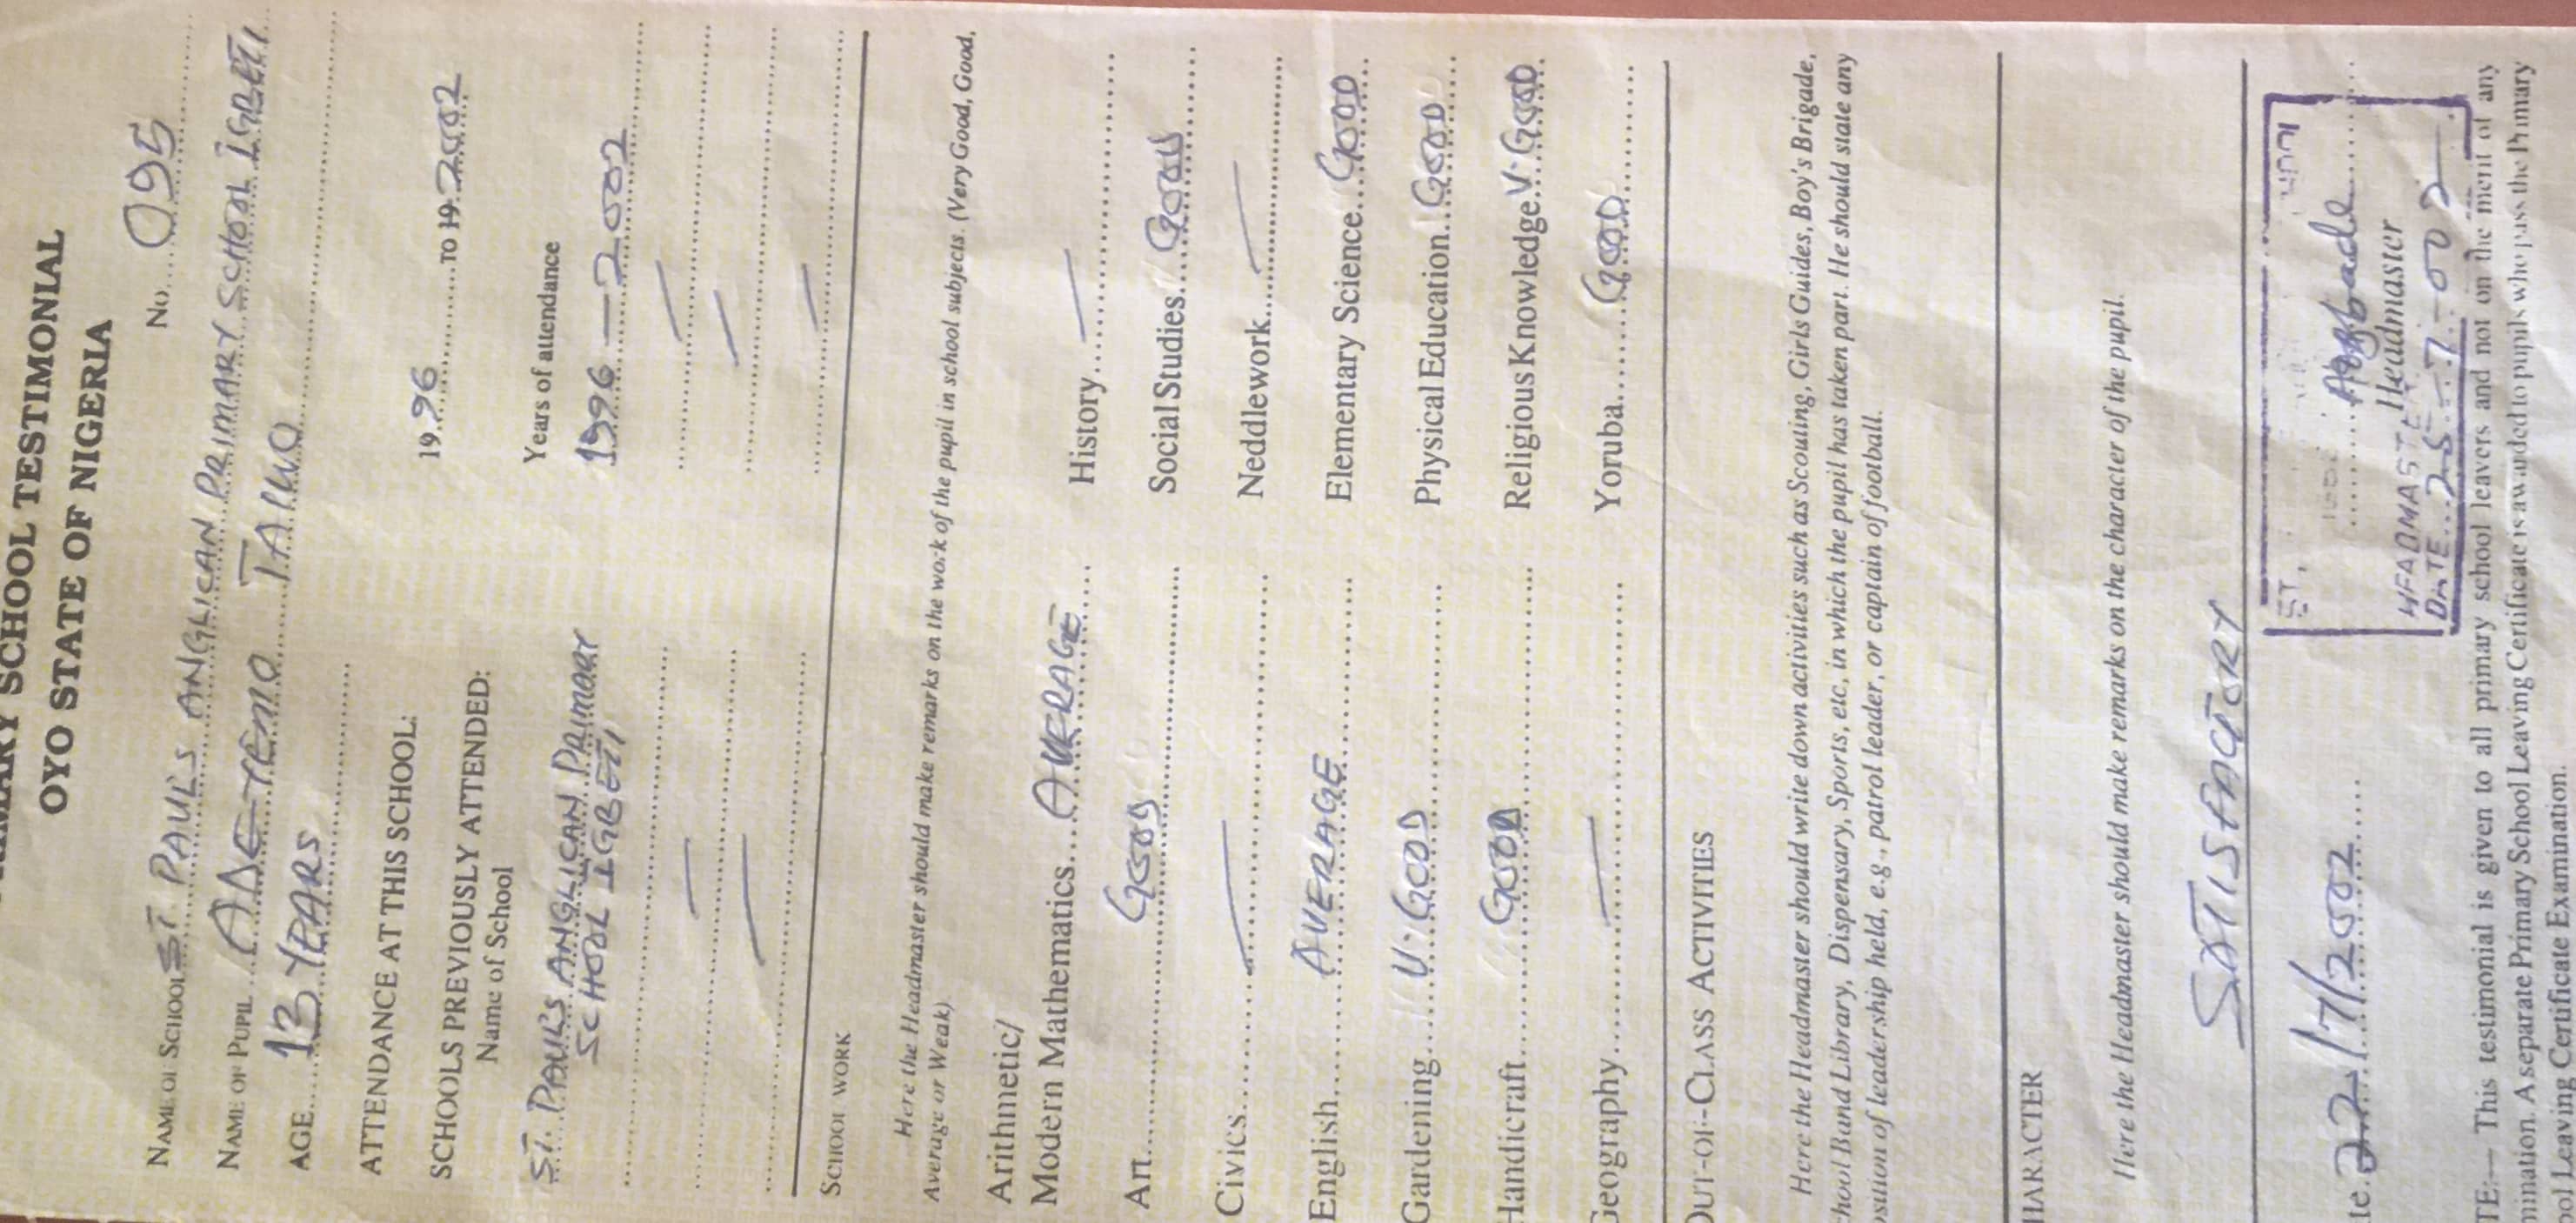 SCHOOL TESTIMONIAL
OYO STATE OF NIGERIA
No. 095
NAME OF SCHOOL ST PAUL'S ANGLICAN PRIMARY SCHOOL IGBETI
NAME OF PUPIL ADEYEMO TAIWO
AGE 13 YEARS
ATTENDANCE AT THIS SCHOOL: 1996 TO 19 2002
SCHOOLS PREVIOUSLY ATTENDED:
Name of School Years of attendance
ST. PAUL'S ANGLICAN PRIMARY 1996 — 2002
SCHOOL IGBETI
SCHOOL WORK
Here the Headmaster should make remarks on the work of the pupil in school subjects. (Very Good, Good,
Average or Weak)
Arithmetic/
Modern Mathematics AVERAGE History —
Art GOOD Social Studies GOOD
Civics — Neddlework —
English AVERAGE Elementary Science GOOD
Gardening V. GOOD Physical Education GOOD
Handicraft GOOD Religious Knowledge V. GOOD
Geography — Yoruba GOOD
OUT-OF-CLASS ACTIVITIES
Here the Headmaster should write down activities such as Scouting, Girls Guides, Boy's Brigade,
hool Band Library, Dispensary, Sports, etc, in which the pupil has taken part. He should state any
osition of leadership held, e.g., patrol leader, or captain of football.
HARACTER
Here the Headmaster should make remarks on the character of the pupil.
SATISFACTORY
ST.
te 22/7/2002
Headmaster
HEADMASTER
DATE 25-7-002
TE:— This testimonial is given to all primary school leavers and not on the merit of any
mination. A separate Primary School Leaving Certificate is awarded to pupils who pass the Primary
ool Leaving Certificate Examination.